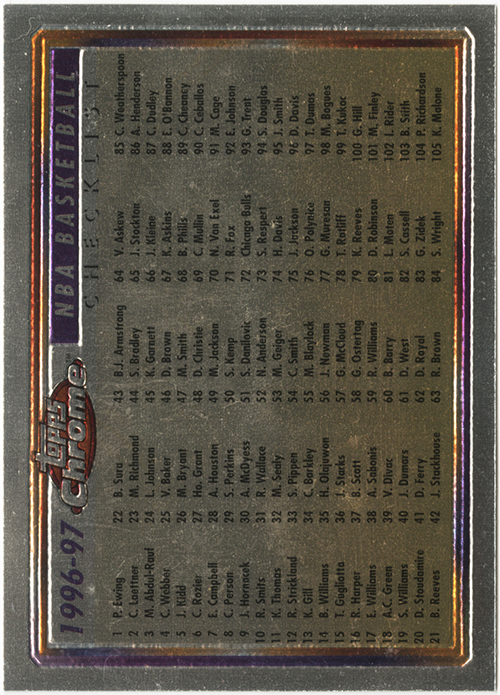 1996-97 Topps Chrome™ NBA BASKETBALL
CHECKLIST
1 P. Ewing
2 C. Laettner
3 M. Abdul-Rauf
4 C. Webber
5 J. Kidd
6 C. Rozier
7 E. Campbell
8 C. Person
9 J. Hornacek
10 R. Smits
11 K. Thomas
12 R. Strickland
13 K. Gill
14 B. Williams
15 T. Gugliotta
16 R. Harper
17 E. Williams
18 A.C. Green
19 S. Williams
20 D. Stoudamire
21 B. Reeves
22 B. Sura
23 M. Richmond
24 L. Johnson
25 V. Baker
26 M. Bryant
27 Ho. Grant
28 A. Houston
29 S. Perkins
30 A. McDyess
31 R. Wallace
32 M. Sealy
33 S. Pippen
34 C. Barkley
35 H. Olajuwon
36 J. Starks
37 B. Scott
38 A. Sabonis
39 V. Divac
40 J. Dumars
41 D. Ferry
42 J. Stackhouse
43 B.J. Armstrong
44 S. Bradley
45 K. Garnett
46 D. Brown
47 M. Smith
48 D. Christie
49 M. Jackson
50 S. Kemp
51 S. Danilovic
52 N. Anderson
53 M. Geiger
54 C. Smith
55 M. Blaylock
56 J. Newman
57 G. McCloud
58 G. Ostertag
59 R. Williams
60 B. Barry
61 D. West
62 D. Royal
63 R. Brown
64 V. Askew
65 J. Stockton
66 J. Kleine
67 K. Askins
68 B. Phills
69 C. Mullin
70 N. Van Exel
71 R. Fox
72 Chicago Bulls
73 S. Respert
74 H. Davis
75 J. Jackson
76 O. Polynice
77 G. Muresan
78 T. Ratliff
79 K. Reeves
80 D. Robinson
81 L. Maten
82 S. Cassell
83 G. Zidek
84 S. Wright
85 C. Weatherspoon
86 A. Henderson
87 C. Dudley
88 E. O'Bannon
89 C. Cheaney
90 C. Ceballos
91 M. Cage
92 E. Johnson
93 G. Trent
94 S. Douglas
95 J. Smith
96 D. Davis
97 T. Dumas
98 M. Bogues
99 T. Kukoc
100 G. Hill
101 M. Finley
102 I. Rider
103 B. Stith
104 P. Richardson
105 K. Malone